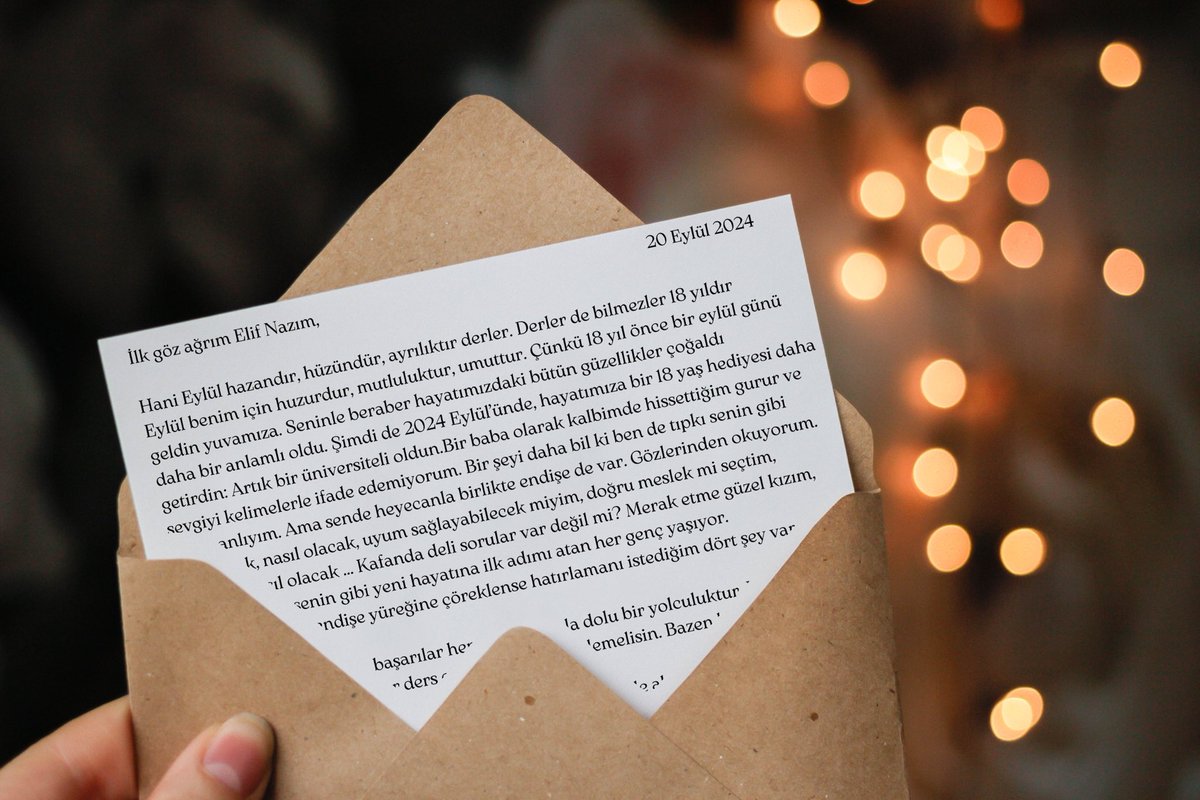 20 Eylül 2024
İlk göz ağrım Elif Nazım,
Hani Eylül hazandır, hüzündür, ayrılıktır derler. Derler de bilmezler 18 yıldır
Eylül benim için huzurdur, mutluluktur, umuttur. Çünkü 18 yıl önce bir eylül günü
geldin yuvamıza. Seninle beraber hayatımızdaki bütün güzellikler çoğaldı
daha bir anlamlı oldu. Şimdi de 2024 Eylül'ünde, hayatımıza bir 18 yaş hediyesi daha
getirdin: Artık bir üniversiteli oldun.Bir baba olarak kalbimde hissettiğim gurur ve
sevgiyi kelimelerle ifade edemiyorum. Bir şeyi daha bil ki ben de tıpkı senin gibi
anlıyım. Ama sende heyecanla birlikte endişe de var. Gözlerinden okuyorum.
k, nasıl olacak, uyum sağlayabilecek miyim, doğru meslek mi seçtim,
ıl olacak ... Kafanda deli sorular var değil mi? Merak etme güzel kızım,
senin gibi yeni hayatına ilk adımı atan her genç yaşıyor.
ndişe yüreğine çöreklense hatırlamanı istediğim dört şey var
başarılar la dolu bir yolculuktur
ders emelisin. Bazen